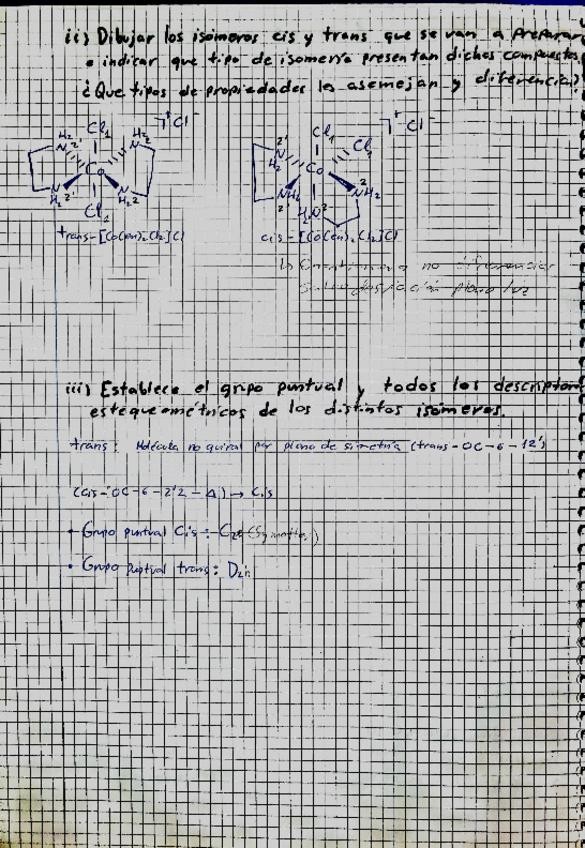 ii) Dibujar los isómeros cis y trans que se van a preparar
e indicar que tipo de isomería presentan dichos compuestos
¿Que tipos de propiedades les asemejan y diferencian?
]⁺Cl⁻
Cl₁
H₂
N 2'
H₂
N
Co
N
H₂ 2'
N
H₂ 2
Cl₁
trans-[Co(en)₂Cl₂]Cl
]⁺Cl⁻
Cl₁
Cl₁
2'
N
H₂
Co
NH₂
2'
2
NH₂
H₂N 2
cis-[Co(en)₂Cl₂]Cl
↳ Enantiómero no diferencias
desviación plano luz
iii) Establece el grupo puntual y todos los descriptores
estequeométricos de los distintos isómeros.
trans: Molécula no quiral por plano de simetría (trans-OC-6-12')
(cis-OC-6-2'2-Δ) → Cis
• Grupo puntual Cis: C₂
• Grupo puntual trans: D₂h